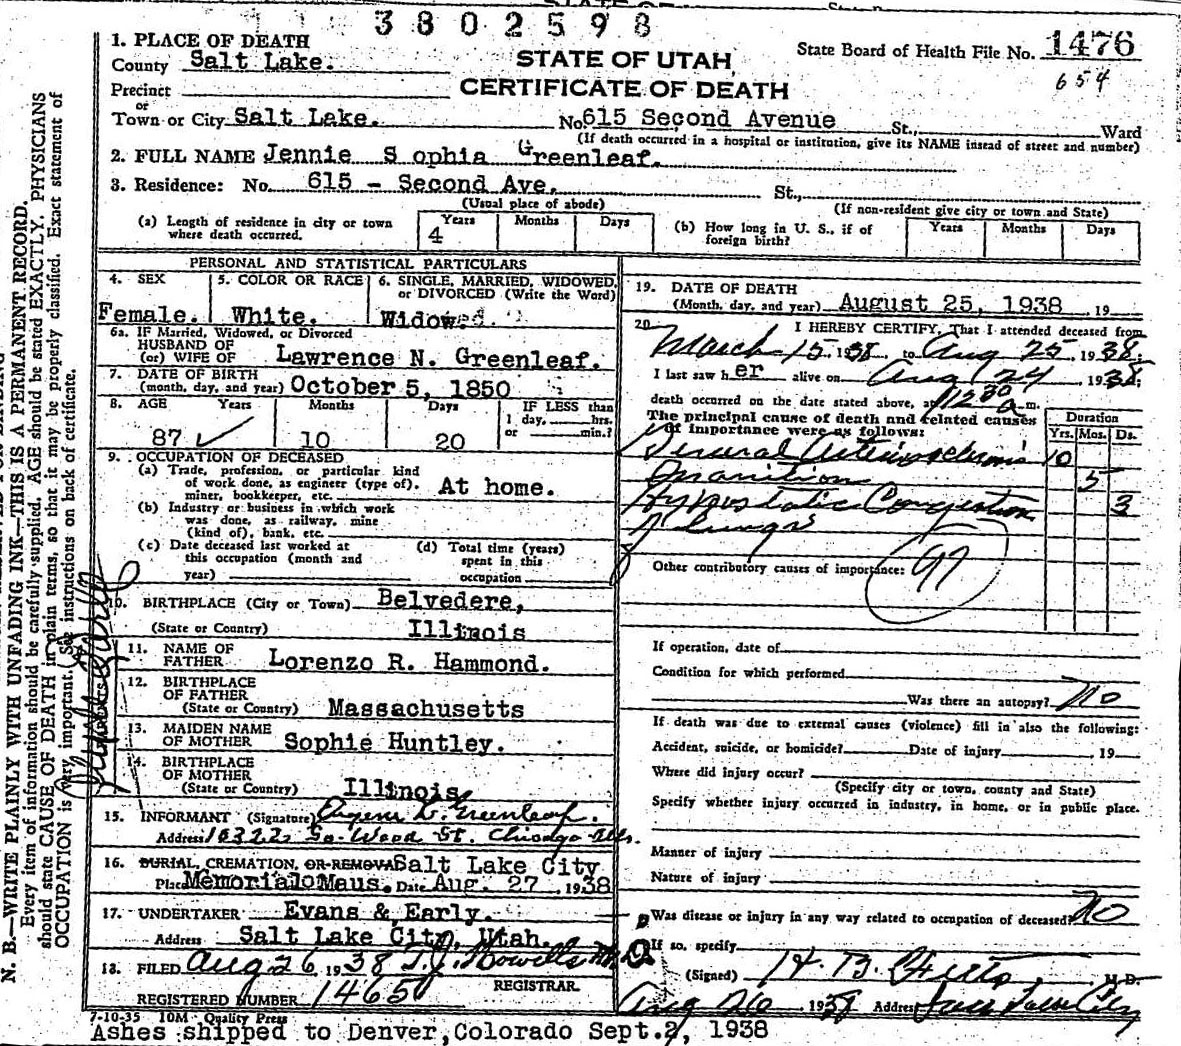 3802598
1. PLACE OF DEATH
County Salt Lake.
STATE OF UTAH
State Board of Health File No. 1476
654
Precinct
CERTIFICATE OF DEATH
or
Town or City Salt Lake. No. 615 Second Avenue St., Ward
(If death occurred in a hospital or institution, give its NAME instead of street and number)
2. FULL NAME Jennie Sophia Greenleaf.
3. Residence: No. 615 - Second Ave. St.,
(Usual place of abode) (If non-resident give city or town and State)
(a) Length of residence in city or town where death occurred. Years 4 Months Days
(b) How long in U. S., if of foreign birth? Years Months Days
PERSONAL AND STATISTICAL PARTICULARS
4. SEX Female.
5. COLOR OR RACE White.
6. SINGLE, MARRIED, WIDOWED, or DIVORCED (Write the Word) Widowed.
6a. IF Married, Widowed, or Divorced
HUSBAND OF
(or) WIFE OF Lawrence N. Greenleaf.
7. DATE OF BIRTH
(month, day, and year) October 5, 1850
8. AGE Years Months Days IF LESS than
1 day, hrs.
or min.?
87 10 20
9. OCCUPATION OF DECEASED
(a) Trade, profession, or particular kind
of work done, as engineer (type of).
miner, bookkeeper, etc. At home.
(b) Industry or business in which work
was done, as railway, mine
(kind of), bank, etc.
(c) Date deceased last worked at
this occupation (month and
year)
(d) Total time (years)
spent in this
occupation
10. BIRTHPLACE (City or Town) Belvedere,
(State or Country) Illinois
11. NAME OF
FATHER Lorenzo R. Hammond.
12. BIRTHPLACE
OF FATHER
(State or Country) Massachusetts
13. MAIDEN NAME
OF MOTHER Sophie Huntley.
14. BIRTHPLACE
OF MOTHER
(State or Country) Illinois
15. INFORMANT (Signature) Eugene L. Greenleaf.
Address 10322 So. Wood St. Chicago Ills.
16. BURIAL, CREMATION, OR REMOVAL Salt Lake City
Place Memorial Maus. Date Aug. 27, 1938
17. UNDERTAKER Evans & Early.
Address Salt Lake City, Utah.
18. FILED Aug 26 1938 T. J. Howells M.D.
REGISTRAR
REGISTERED NUMBER 1465
7-10-35 10M Quality Press
Ashes shipped to Denver, Colorado Sept. 2, 1938
19. DATE OF DEATH
(Month, day, and year) August 25, 1938 , 19
20. I HEREBY CERTIFY, That I attended deceased from
March 15 1938, to Aug 25, 1938;
I last saw her alive on Aug 24 1938;
death occurred on the date stated above, at 1230 a m.
The principal cause of death and related causes
of importance were as follows:
Duration
Yrs. Mos. Ds.
General Arteriosclerosis 10
Inanition 5
Hypostatic Congestion 3
of Lungs
Other contributory causes of importance: 97
If operation, date of
Condition for which performed
Was there an autopsy? no
If death was due to external causes (violence) fill in also the following:
Accident, suicide, or homicide? Date of injury , 19
Where did injury occur?
(Specify city or town, county and State)
Specify whether injury occurred in industry, in home, or in public place.
Manner of injury
Nature of injury
Was disease or injury in any way related to occupation of deceased? no
If so, specify
(Signed) H. B. M.D.
Aug 26 1938 Address Salt Lake City
N. B.—WRITE PLAINLY WITH UNFADING INK—THIS IS A PERMANENT RECORD.
Every item of information should be carefully supplied. AGE should be stated EXACTLY. PHYSICIANS
should state CAUSE OF DEATH in plain terms, so that it may be properly classified. Exact statement of
OCCUPATION is very important. See instructions on back of certificate.